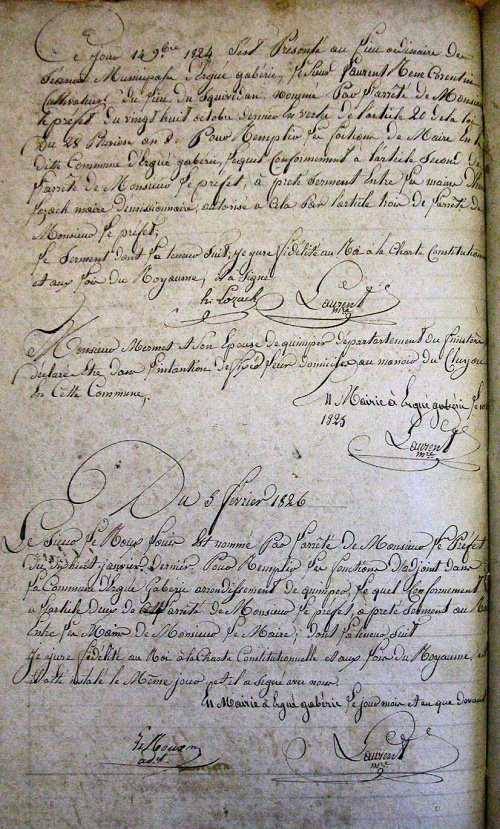 Ce Jour 14 9bre 1824 sest Presenté au lieu ordinaire des
Seances Municipale d'Ergué gaberie, le sieur Laurent Rene Corentin
Cultivateur du lieu du Squividan, nommé Par l'arreté de Monsieur
le prefet du vingt huit octobre dernier En vertu de l'article 20 de la loi
du 28 Pluviose an 8. Pour Remplir les fonctions de Maire En la
dite Commune d'Ergué gaberie, lequel Conformement à l'article Second de
l'arreté de Monsieur le prefet, à preté serment Entre les mains
Lozach maire demissionnaire, autorisé a cela par l'article trois de l'arreté de
Monsieur le prefet;
le serment dont la teneur suit, je jure fidelité au Roi à la Charte Constitutionnelle
et aux Lois du Royaume, et a signé
hi Lozach Laurent
mre
Monsieur Mermet et son Epouse de quimper departement du finistère
declare être dans l'intantion de fixer leur domicile au manoir du Cluyou
En Cette Commune.
A Mairie à Ergué gaberie le
1825
Laurent
mre
Du 5 fevrier 1826
Le sieur Le Roux Est nommé Par l'arrêté de Monsieur Le Prefet
du janvier Dernier Pour Remplir les fonctions d'adjoint dans
la Commune d'Ergué Gaberie arrondissement de quimper, Le quel Conformement
a l'article Deux de arrêté de Monsieur le prefet, a prete serment au
Entre les Mains de Monsieur le Maire; dont la teneur suit
Je jure fidelité au Roi à la Charte Constitutionnelle et aux Lois du Royaume,
a été installé le Même jour, et il a signé avec nous.
A Mairie à Ergué gabérie le jour mois et an que devant
Le Roux Laurent
adt mre